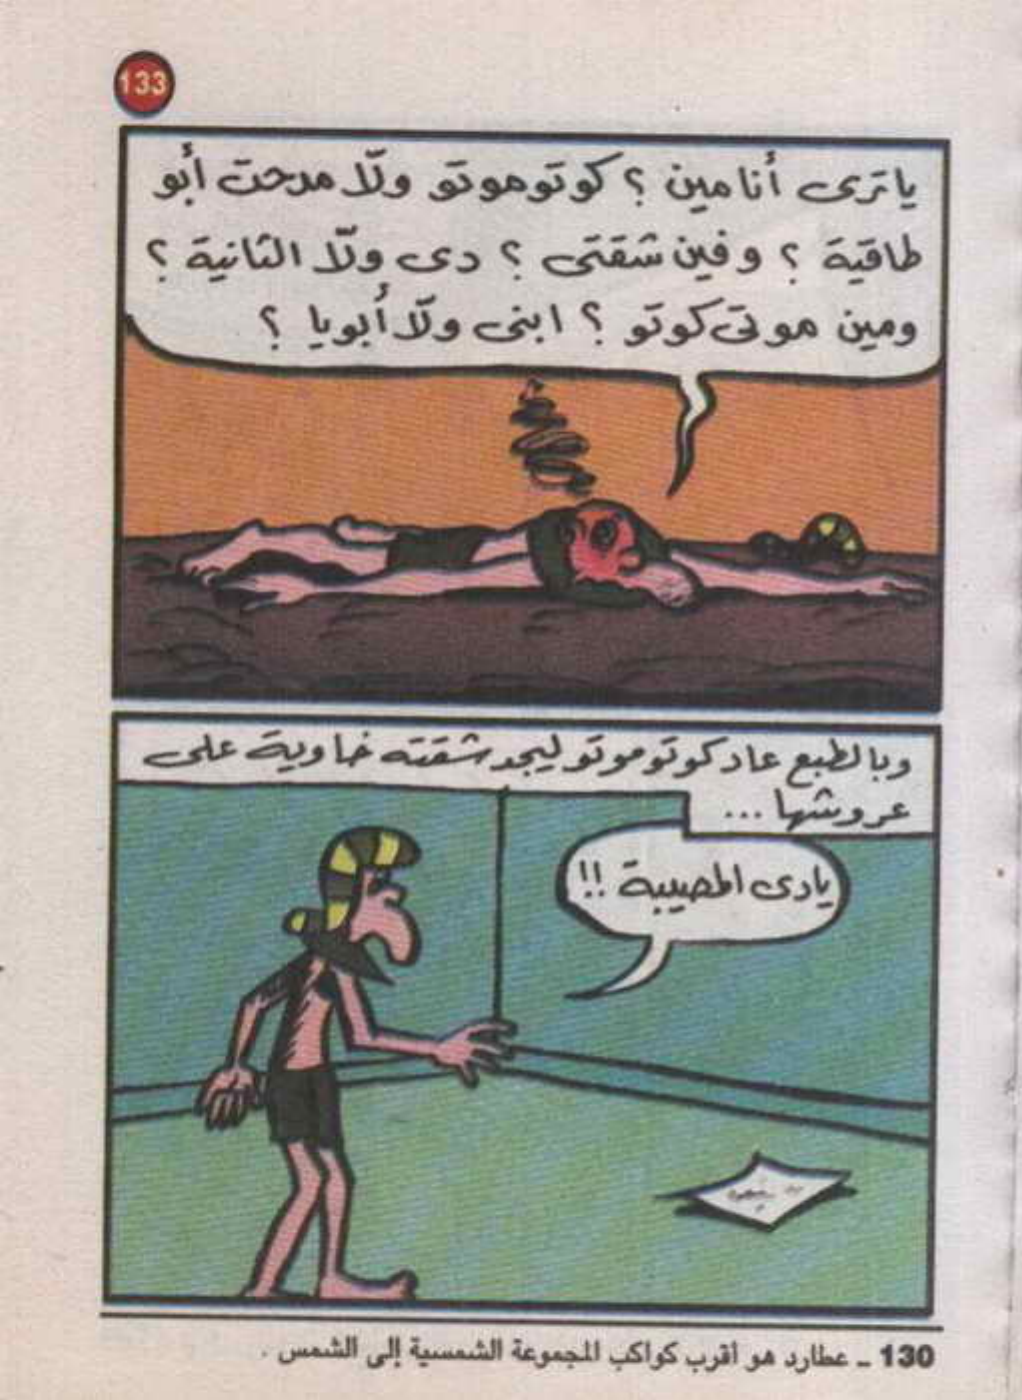 133
ياترى أنا مين ؟ كوتوموتو ولّا مدحت أبو
طاقية ؟ وفين شقتى ؟ دى ولّا الثانية ؟
ومين موتى كوتو ؟ ابنى ولّا أبويا ؟
وبالطبع عاد كوتوموتو ليجد شقته خاوية على
عروشها ...
يادى المصيبة !!
130 ـ عطارد هو أقرب كواكب المجموعة الشمسية إلى الشمس .